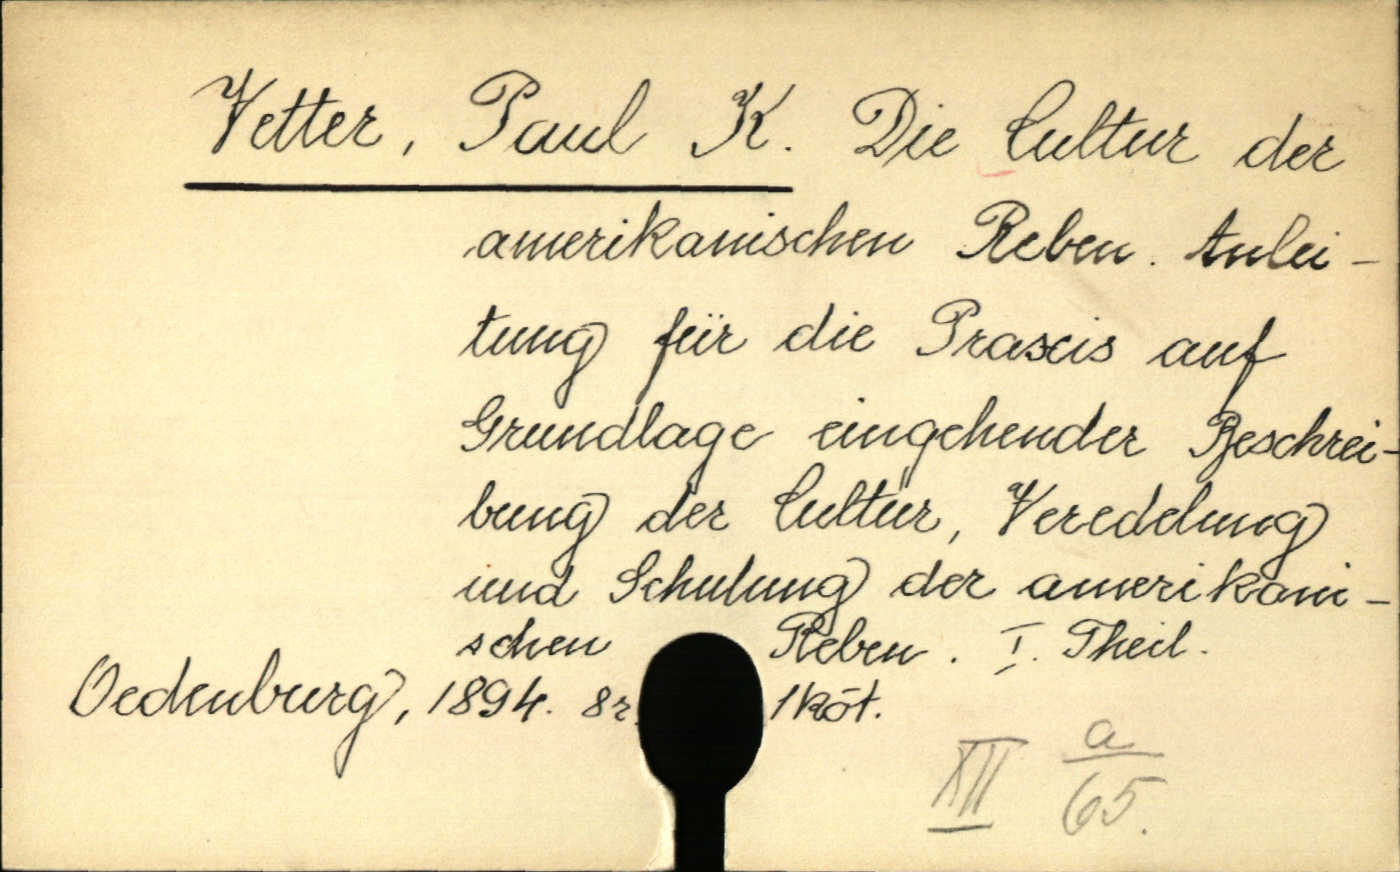 Vetter, Paul K. Die Cultur der
amerikanischen Reben. Anlei-
tung für die Praxis auf
Grundlage eingehender Beschrei-
bung der Cultur, Veredelung
und Schulung der amerikani-
schen Reben. I. Theil.
Oedenburg, 1894. 8r. 1 köt.
XII a/65.